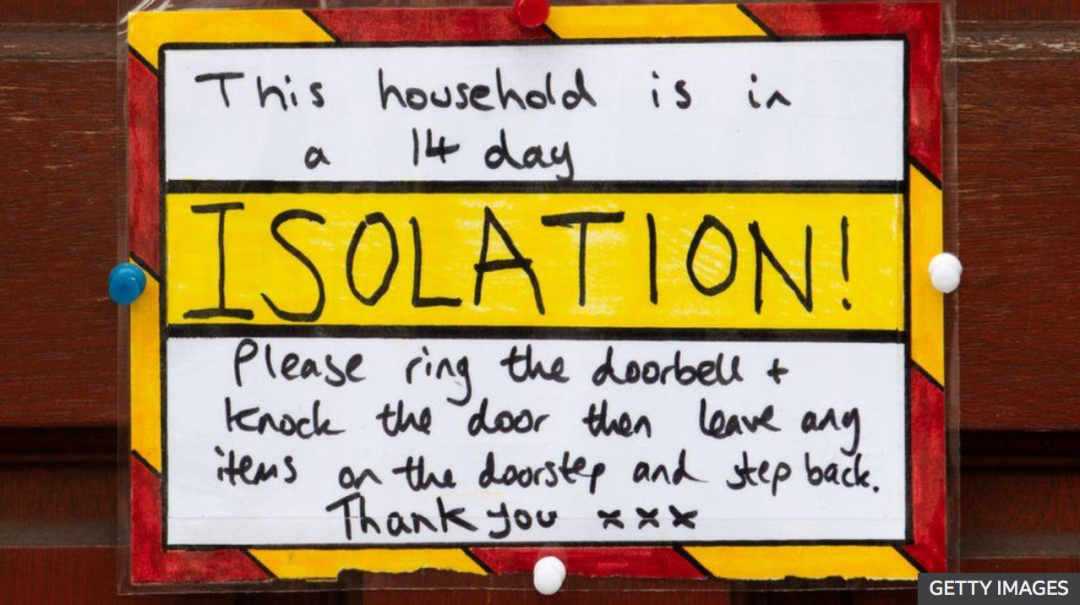 This household is in
a 14 day
ISOLATION!
Please ring the doorbell +
knock the door then leave any
items on the doorstep and step back.
Thank you xxx
GETTY IMAGES